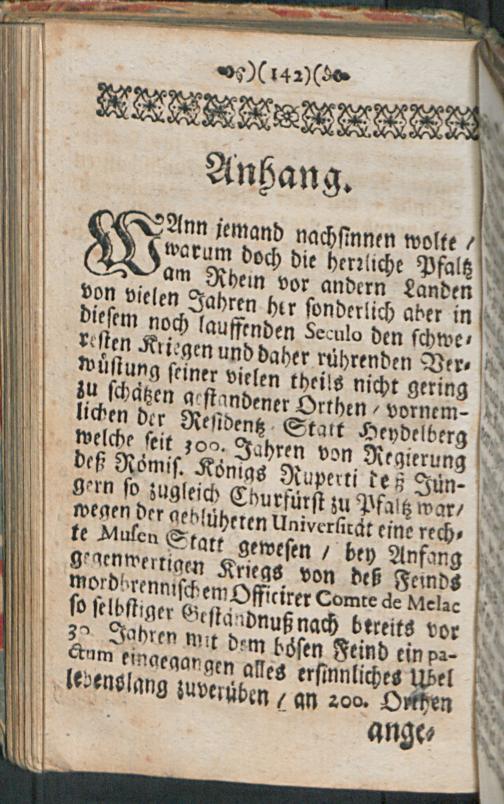 )(142)(
Anhang.
WAnn jemand nachsinnen wolte /
warum doch die herrliche Pfaltz
am Rhein vor andern Landen
von vielen Jahren her sonderlich aber in
diesem noch lauffenden Seculo den schwe-
resten Kriegen und daher rührenden Ver-
wüstung seiner vielen theils nicht gering
zu schätzen gestandener Orthen / vornem-
lichen der Residentz Statt Heydelberg
welche seit 300. Jahren von Regierung
deß Römis. Königs Ruperti deß Jün-
gern so zugleich Churfürst zu Pfaltz war /
wegen der geblüheten Universität eine rech-
te Musen Statt gewesen / bey Anfang
gegenwertigen Kriegs von deß Feinds
mordbrennischem Officirer Comte de Melac
so selbstiger Geständnuß nach bereits vor
30. Jahren mit dem bösen Feind ein pa-
ctum eingegangen alles ersinnliches Ubel
lebenslang zuverüben / an 200. Orthen
ange-